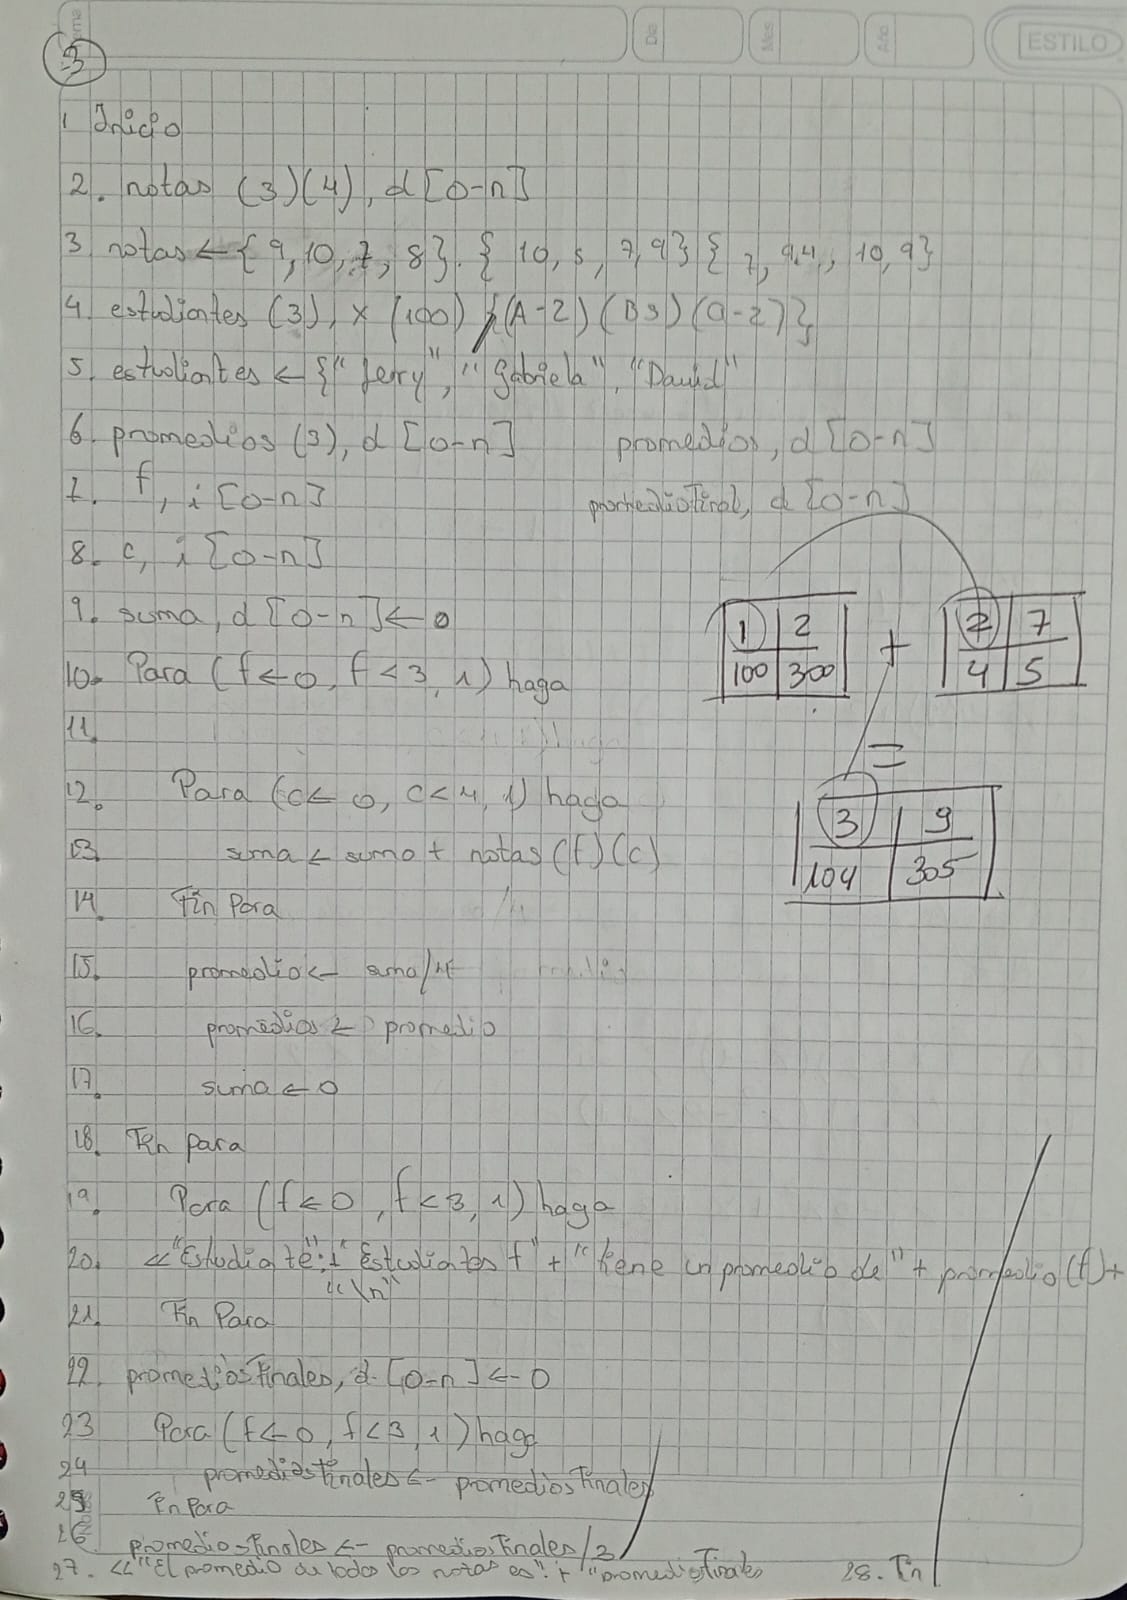 Tema
Día
Mes
Año
ESTILO
3
1 Inicio
2. notas (3)(4), d [0-n]
3 notas ← {9, 10, 7, 8}. { 10, 5, 7, 9} { 7, 9.4, 10, 9}
4. estudiantes (3), x (100) {(A-Z)
5. estudiantes ← {"Jerry", "Gabriela", "David"
6. promedios (3), d [0-n] promedios, d [0-n]
7. f, i [0-n] promedioFinal, d [0-n]
8. c, i [0-n]
9. suma, d [0-n] ← 0
10. Para (f ← 0, f < 3, 1) haga
11.
12. Para (c ← 0, c < 4, 1) haga
13 suma ← suma + notas (f)(c)
14. Fin Para
15. promedio ← suma/4
16. promedios ← promedio
17. suma ← 0
18. Fin para
19. Para (f ← 0, f < 3, 1) haga
20. << "Estudiante": + Estudiantes f" + "tiene un promedio de" + promedio (f) +
"\n"
21. Fin Para
22. promediosFinales, d [0-n] ← 0
23 Para (f ← 0, f < 3, 1) haga
24 promediosFinales ← promediosFinales
25 Fin Para
26. promedio-Finales ← promediosFinales/3
27. << "El promedio de todas las notas es": + "promediosFinales 28. Fin
1 2
100 300
+
2 7
4 5
=
3 9
104 305